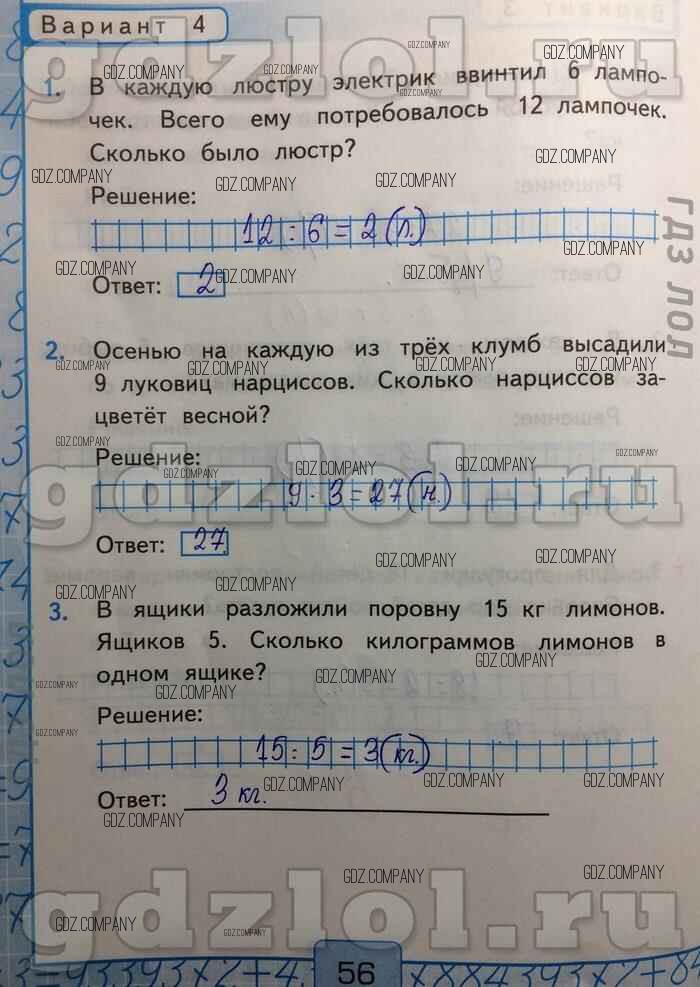 Вариант 4
1. В каждую люстру электрик ввинтил 6 лампо-
чек. Всего ему потребовалось 12 лампочек.
Сколько было люстр?
Решение:
12 : 6 = 2 (л.)
Ответ: 2
2. Осенью на каждую из трёх клумб высадили
9 луковиц нарциссов. Сколько нарциссов за-
цветёт весной?
Решение:
9 · 3 = 27 (н.)
Ответ: 27
3. В ящики разложили поровну 15 кг лимонов.
Ящиков 5. Сколько килограммов лимонов в
одном ящике?
Решение:
15 : 5 = 3 (кг.)
Ответ: 3 кг.
56
gdzlol.ru
gdzlol.ru
gdzlol.ru
ГДЗ ЛОЛ
GDZ.COMPANY